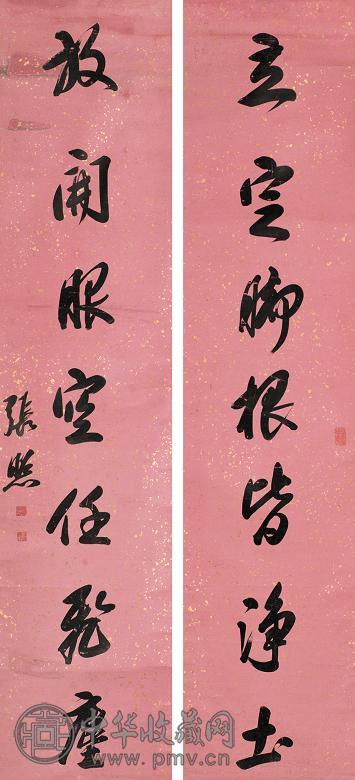 立定脚根皆净土
放开眼空任飛塵
張照
中华收藏网
www.pmv.cn